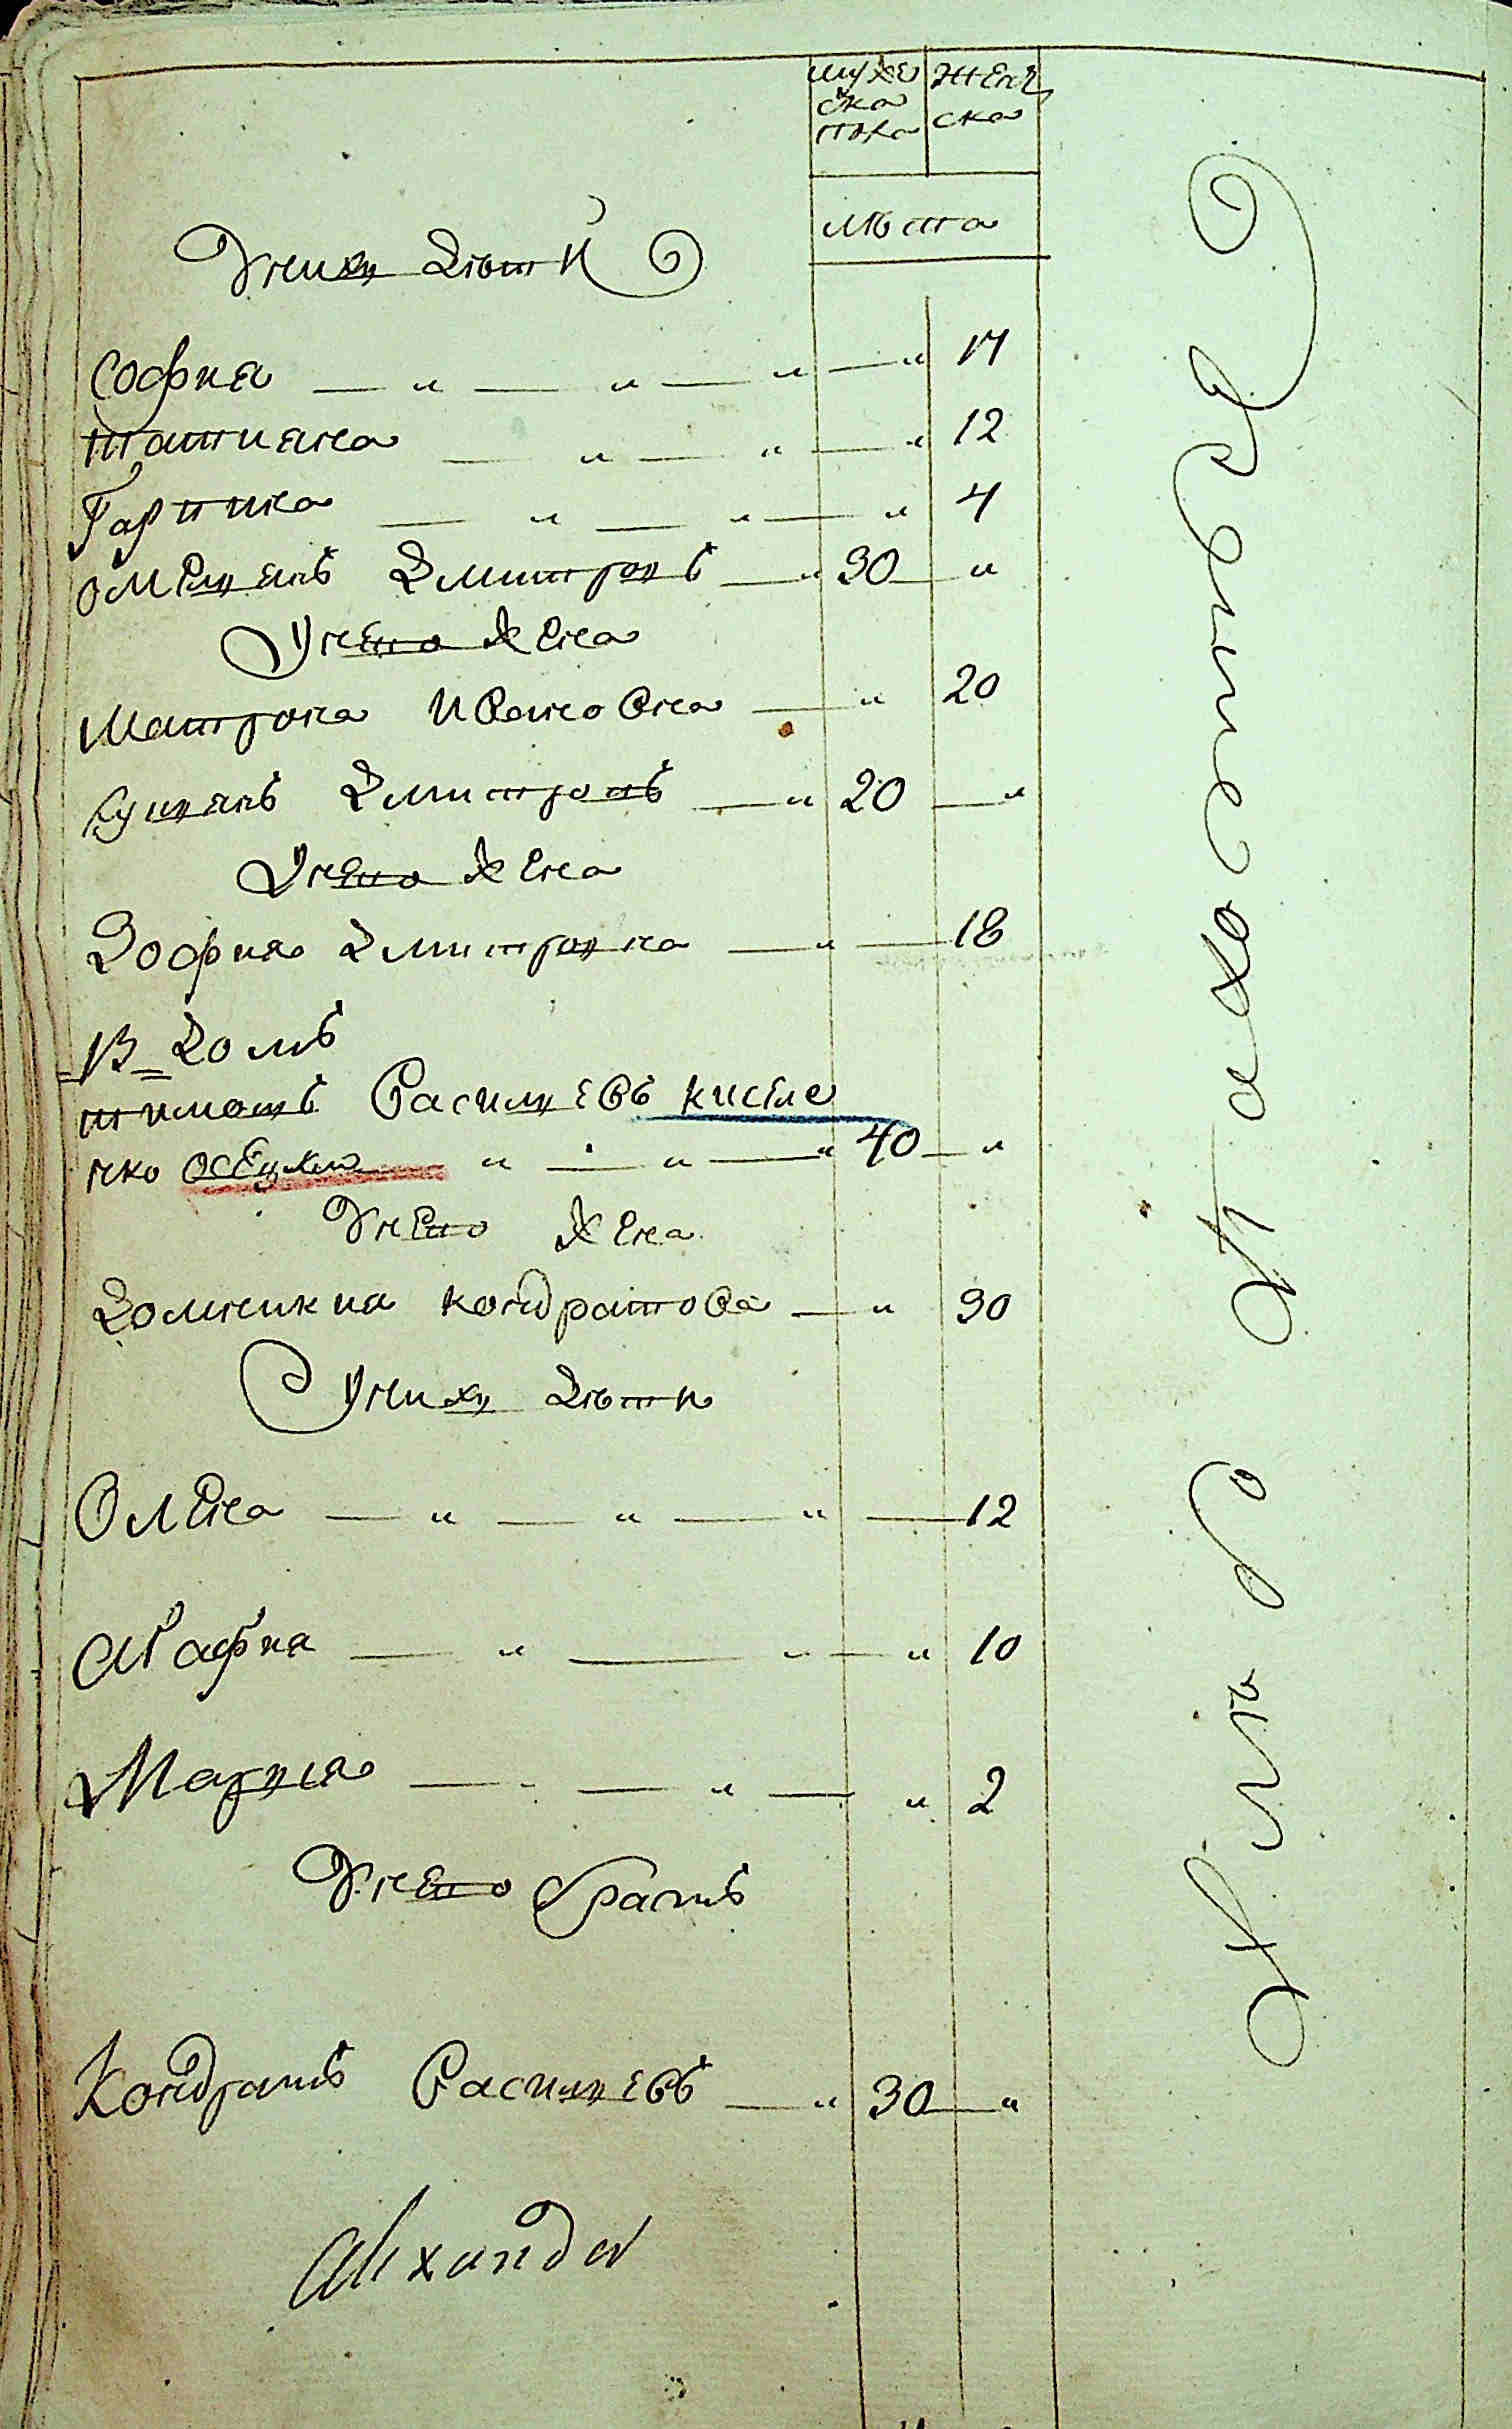 мужеска пола
женска
лѣта
У них дѣти
София — " — " — " — " 17
татиана — " — " — " 12
Гарпина — " — " — " 4
омелианъ дмитровъ — " 30 — "
У него жена
Матрона Ивановна — " 20
дмитровъ — " 20 — "
У него жена
Зофия дмитровна — " — 18
В домѣ
тимошъ Василиевъ кисѣле
нко — " — " — " 40 — "
У него жена
домникиа кондратова — " 30
У них дѣти
Олена — " — " — " — 12
агафиа — " — " — " 10
Мариа — " — " — " 2
У него братъ
Кондратъ Василиевъ — " 30 — "
Alexander